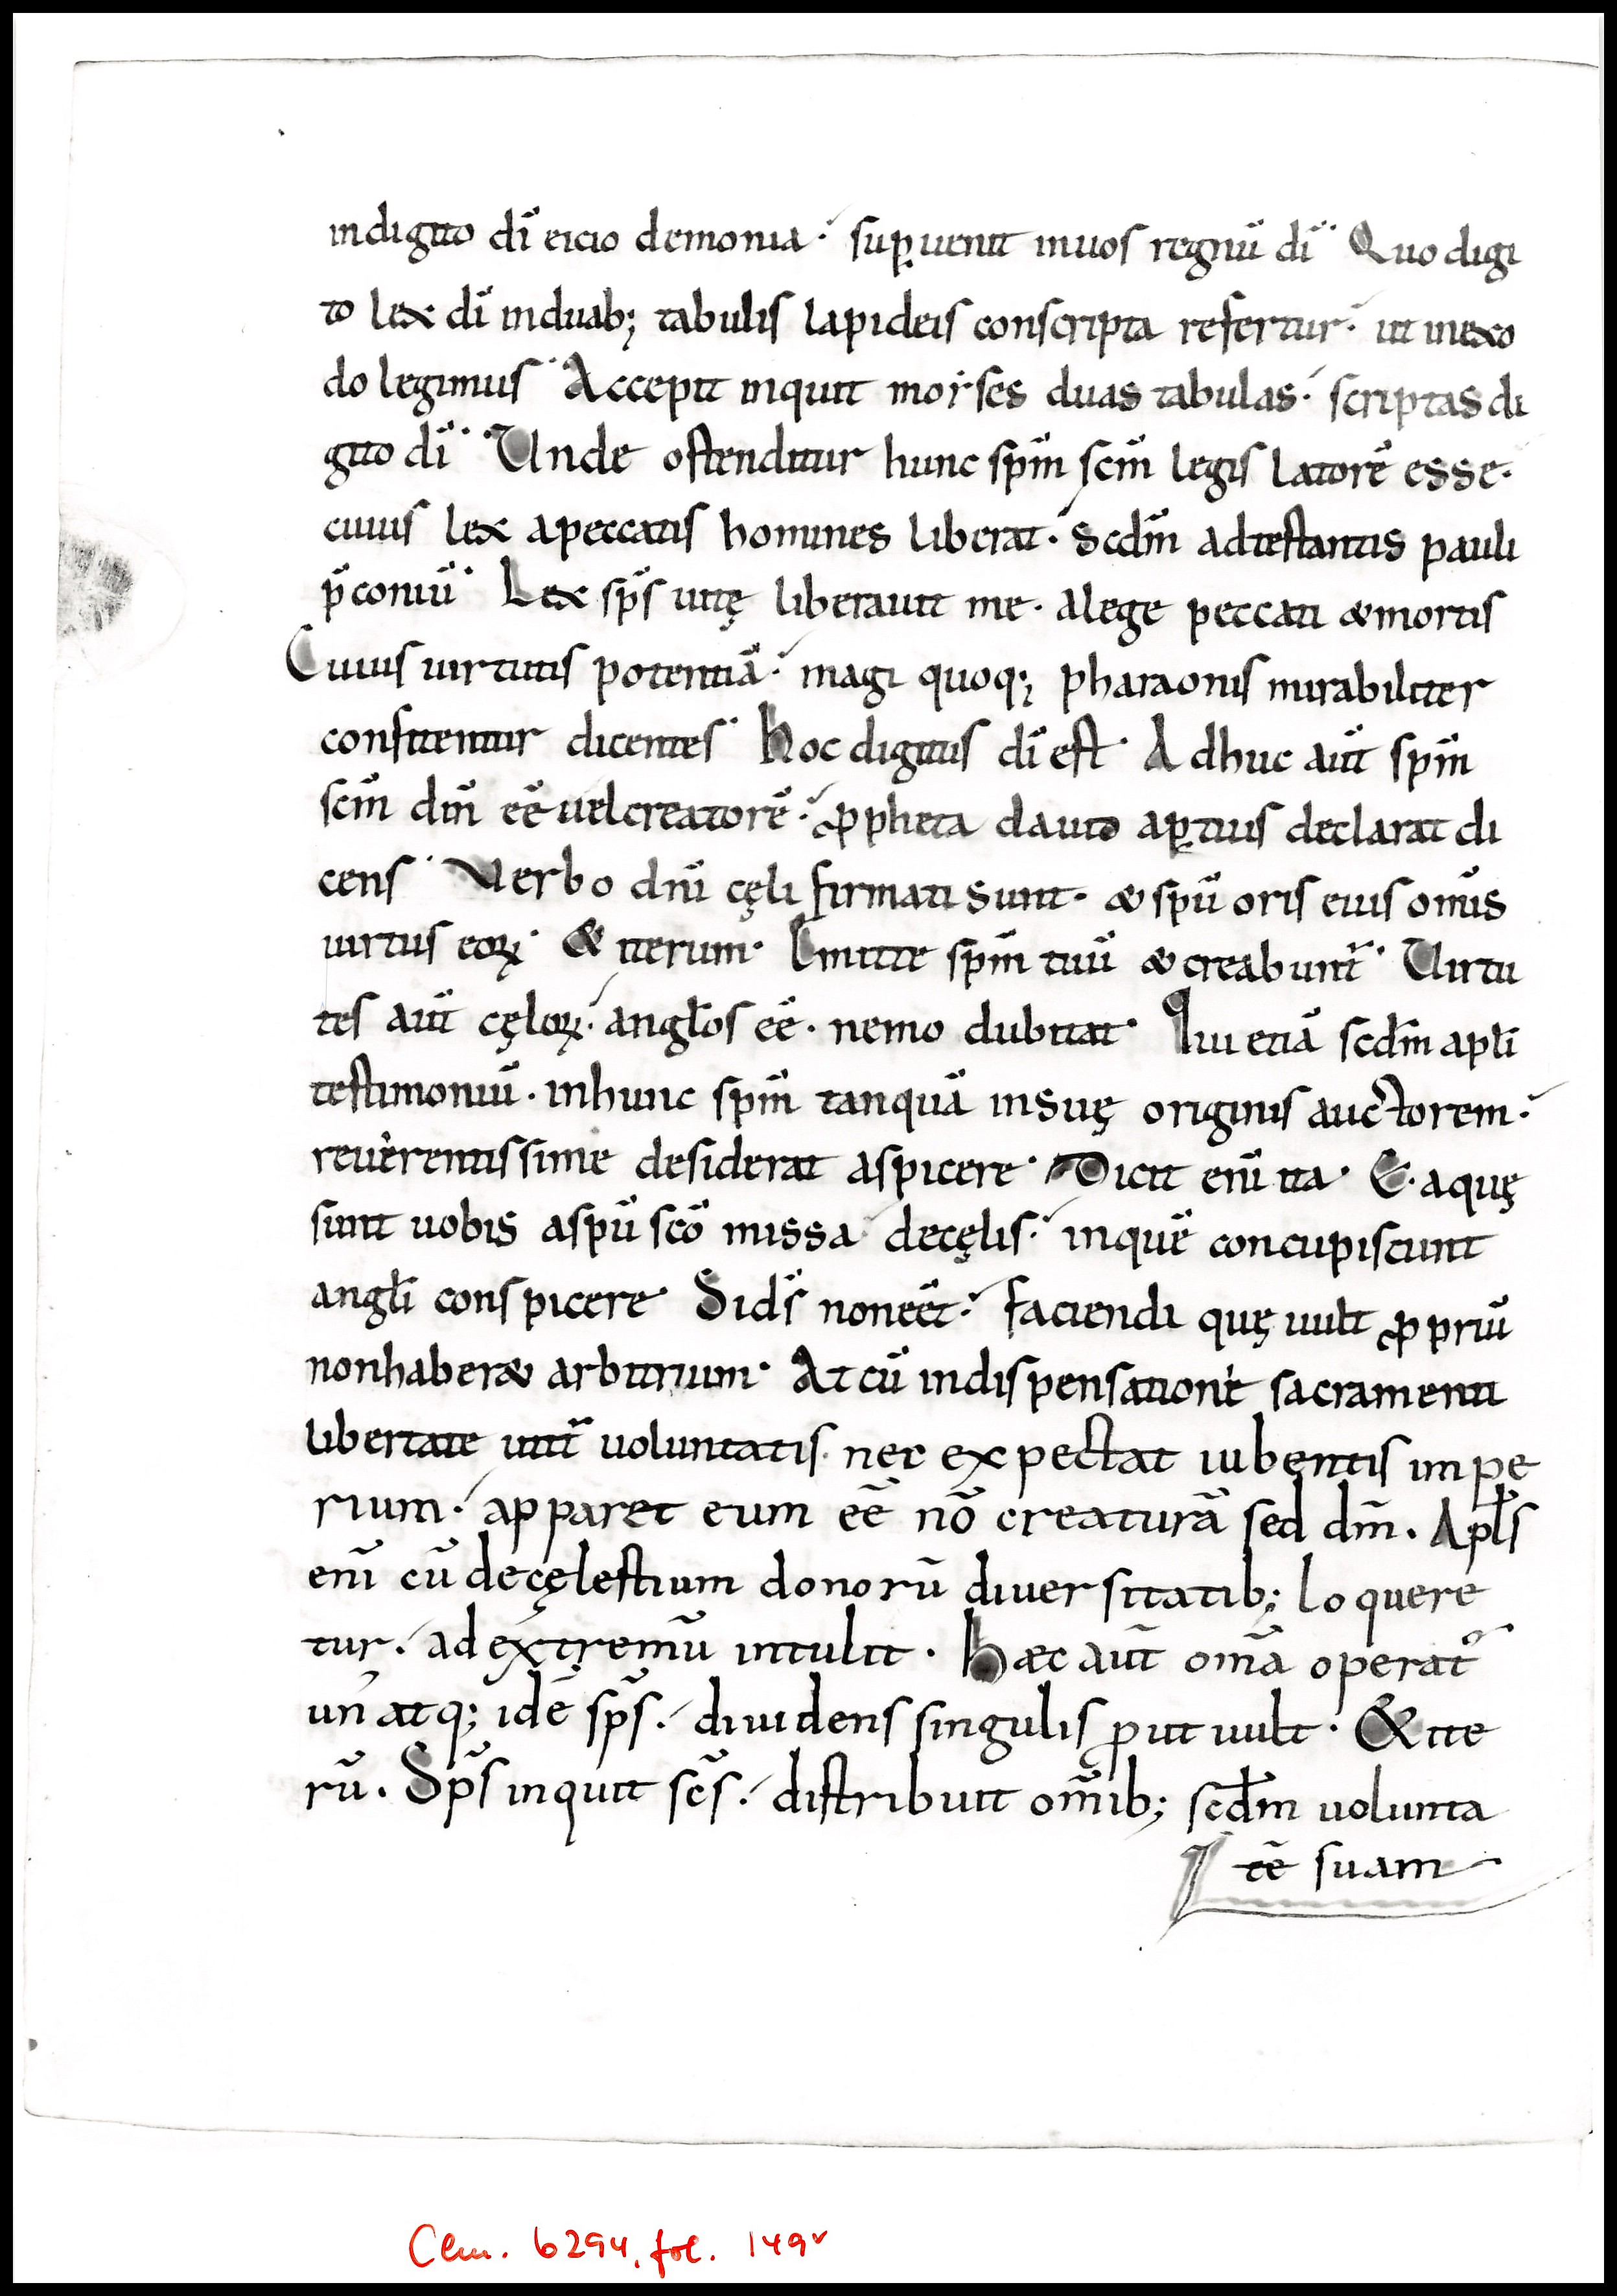 indigito dī eicio demonia· sup̱uenit inuos regnū dī Quo digi
to lex dī induab; tabulis lapideis conscripta refertur· ut inexo
do legimus· Accepit inquit moyses duas tabulas· scriptas di
gito dī· Unde ostenditur hunc sp̄m sc̄m legis latorē esse·
cuius lex apeccatis homines liberat· Scd̄m adtestantis pauli
p̄coniū· Lex sp̄s uitę liberauit me· alege peccati &mortis
Cuius uirtutis potentiā· magi quoq; pharaonis mirabiliter
confitentur dicentes· hoc digitus dī est· Adhuc aut̄ sp̄m
sc̄m dn̄m eē uelcreatorē· ꝓpheta dauid ap̱tius declarat di
cens· Uerbo dn̄i cęli firmati sunt· &spū oris eius om̄is
uirtus eoꝝ· & iterum· Emitte sp̄m tuū &creabunt̄· Uirtu
tes aut̄ cęloꝝ· angl̄os eē· nemo dubitat· Qui etiā scd̄m apl̄i
testimoniū· inhunc sp̄m tanquā insuę originis auctorem·
reuerentissime desiderat aspicere· Dicit eni̅ ita· Ea quę
sunt uobis aspū scō missa decęlis· inquē concupiscunt
angl̄i conspicere· Sids̄ noneēt· faciendi quę uult ꝓpriū
nonhaber& arbitrium· Atcū indispensatione sacramenti
libertate utit̄ uoluntatis· nec expectat iubentis impe
rium· apparet eum eē nō creaturā sed dn̄m. Apl̄s
eni̅ cū decęlestium donorū diuersitatib; loquere
tur· adextremū intulit· haec aut̄ om̄a operat̄
un' atq; idē sp̄s· diuidens singulis ꝓut uult· & ite
rū. Sp̄s inquit sc̄s· distribuit om̄ib; scd̄m uolunta
tē suam
Clm. 6294, fol. 149v